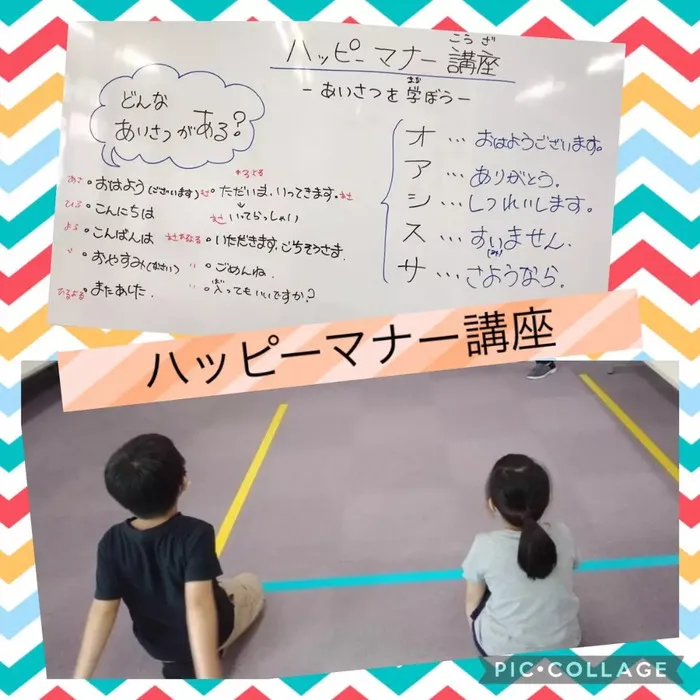 ハッピーマナー講座
こうざ
-あいさつを学ぼう-
まな
どんな
あいさつがある?
あさ 。おはよう(ございます)
ひる 。こんにちは
よる 。こんばんは
〃 。おやすみ(なさい)
。またあした.
。ただいま.いってきます.
↓
いってらっしゃい
。いただきます.ごちそうさま.
〃 。ごめんね.
。入ってもいいですか?
オ … おはようございます。
ア … ありがとう.
シ … しつれいします。
ス … すいません.
サ … さようなら.
ハッピーマナー講座
PIC•COLLAGE